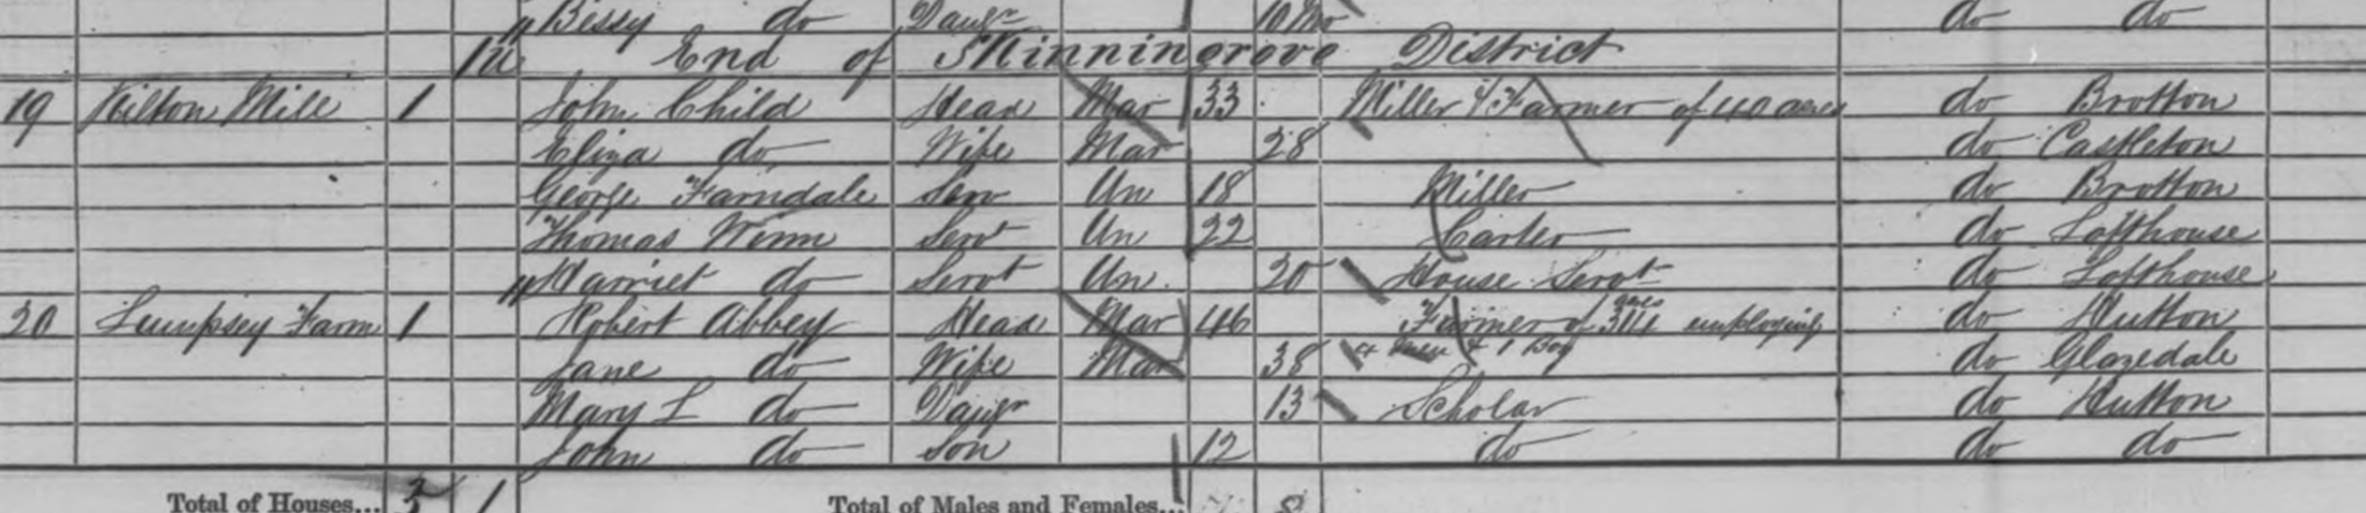 " Bessy do Daugr 10 Mo do do
End of Skinningrove District
19 Kilton Mill 1 John Child Head Mar 33 Miller & Farmer of 40 acres do Brotton
Eliza do Wife Mar 28 do Castleton
George Farndale Serv Un 18 Miller do Brotton
Thomas Winn Servt Un 22 Carter do Lofthouse
" Harriet do Servt Un. 20 House Servt do Lofthouse
20 Lumpsey Farm 1 Robert Abbey Head Mar 46 Farmer of acres employing do Hutton
Jane do Wife Mar 38 4 Men & 1 Boy do Glazedale
Mary L do Daugr 13 Scholar do Hutton
John do Son 12 do do do
Total of Houses... 3 1 Total of Males and Females... 8